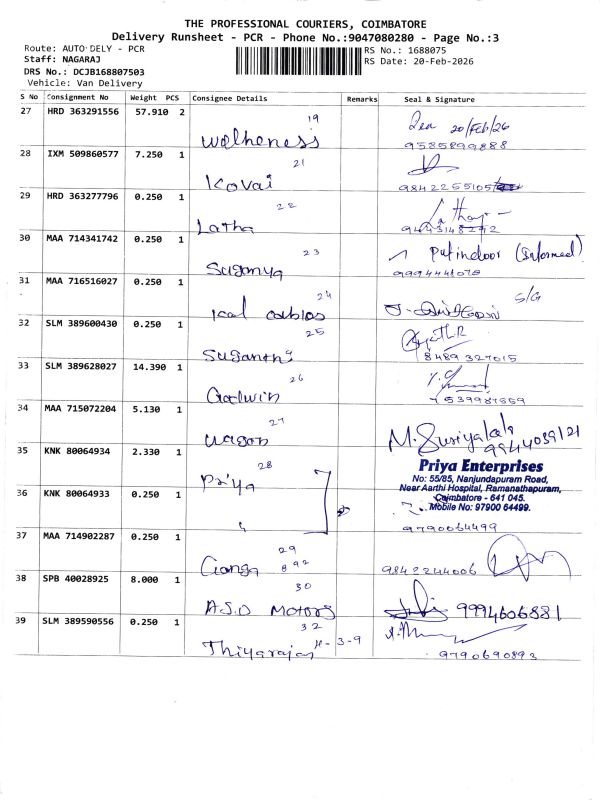 THE PROFESSIONAL COURIERS, COIMBATORE
Delivery Runsheet - PCR - Phone No.:9047080280 - Page No.:3
Route: AUTO DELY - PCR
RS No.: 1688075
Staff: NAGARAJ
RS Date: 20-Feb-2026
DRS No.: DCJB168807503
Vehicle: Van Delivery
S No Consignment No Weight PCS Consignee Details Remarks Seal & Signature
27 HRD 363291556 57.910 2 19 20/Feb/26
Welheness 9585899888
28 IXM 509860577 7.250 1 21
Kovai 9842255105
29 HRD 363277796 0.250 1 22
Latha
30 MAA 714341742 0.250 1 23 Put indoor (Informed)
Suganya
31 MAA 716516027 0.250 1 24 S/G
32 SLM 389600430 0.250 1 25
Suganthi 8489327015
33 SLM 389628027 14.390 1 26
Godwin 7539987559
34 MAA 715072204 5.130 1 27
Wagon M. Suriyakala
35 KNK 80064934 2.330 1 28
Priya
Priya Enterprises
No: 55/85, Nanjundapuram Road,
Near Aarthi Hospital, Ramanathapuram,
Coimbatore - 641 045.
Mobile No: 97900 64499.
36 KNK 80064933 0.250 1
9790064499
37 MAA 714902287 0.250 1 29
Ganga 892 9842244006
38 SPB 40028925 8.000 1 30
A.S.D Motors 9994606881
39 SLM 389590556 0.250 1 32
Thiyagarajan H-3-9 9790690893